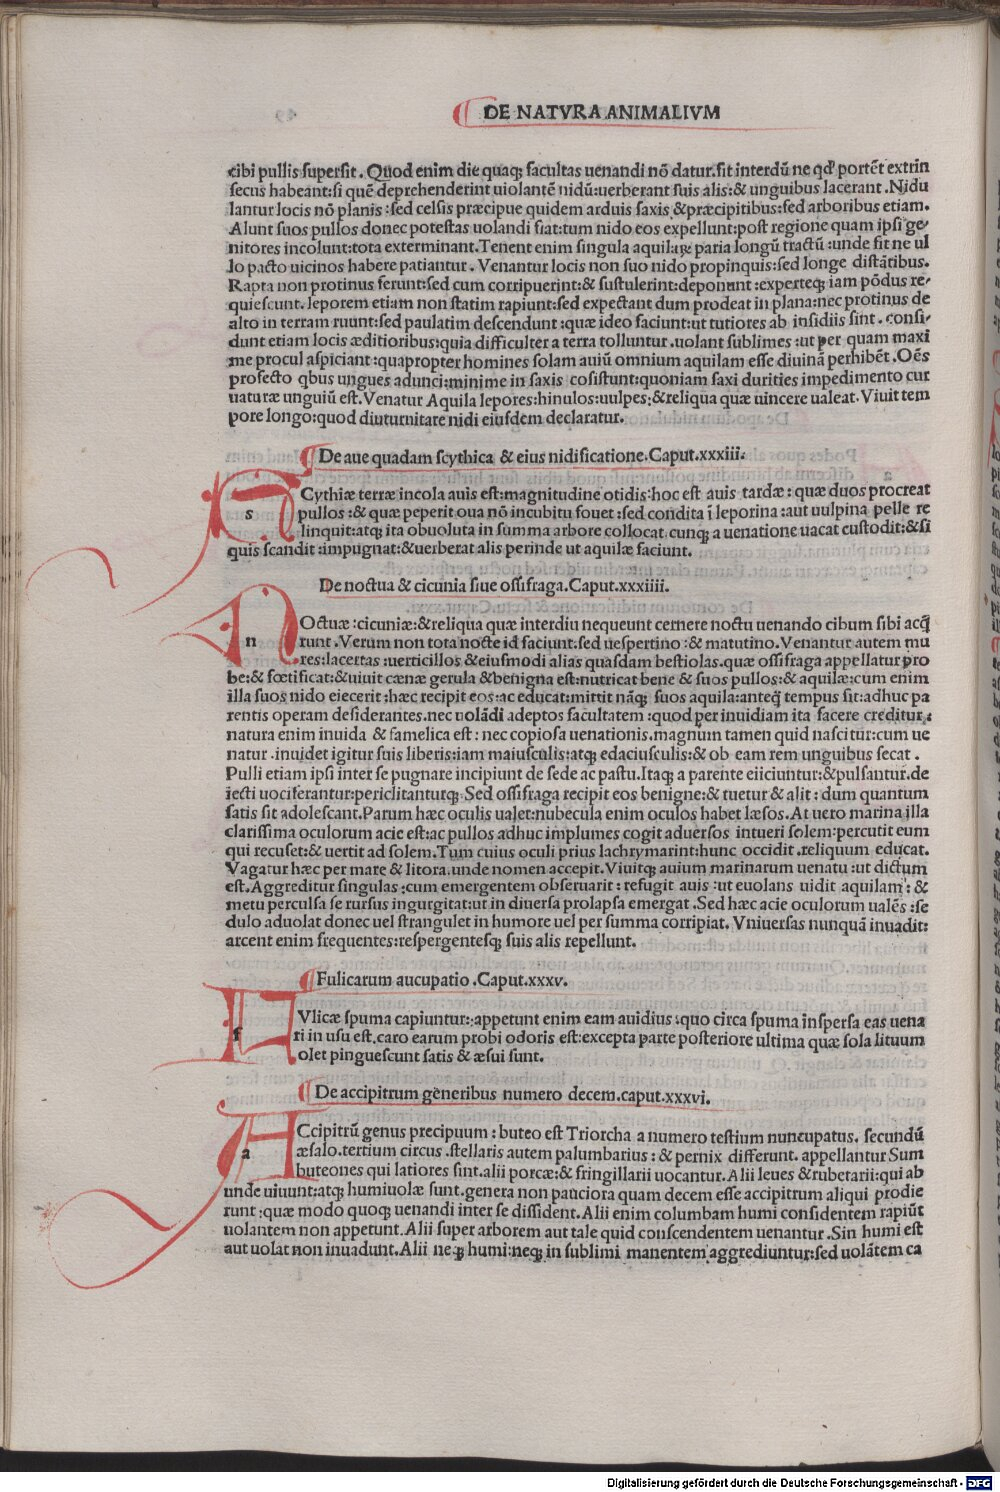 DE NATVRA ANIMALIVM
cibi pullis supersit. Quod enim die quaq; facultas uenandi nō datur. sit interdū ne qd' portēt extrin
secus habeant: si quē deprehenderint uiolantē nidū: uerberant suis alis: & unguibus lacerant. Nidu
lantur locis nō planis: sed celsis præcipue quidem arduis saxis, & præcipitibus: sed arboribus etiam.
Alunt suos pullos donec potestas uolandi fiat: tum nido eos expellunt: post regione quam ipsi ge-
nitores incolunt: tota exterminant. Tenent enim singula aquilaꝝ paria longū tractū: unde fit ne ul
lo pacto uicinos habere patiantur. Venantur locis non suo nido propinquis: sed longe distātibus.
Rapta non protinus ferunt: sed cum corripuerint: & sustulerint: deponunt: experteq; iam pōdus re-
quiescunt. leporem etiam non statim rapiunt: sed expectant dum prodeat in plana: nec protinus de
alto in terram ruunt: sed paulatim descendunt: quæ ideo faciunt: ut tutiores ab insidiis sint. consi-
dunt etiam locis æditioribus: quia difficulter a terra tolluntur. uolant sublimes: ut ꝑ quam maxi
me procul aspiciant: quapropter homines solam auiū omnium aquilam esse diuinā perhibēt. Oēs
profecto qbus ungues adunci: minime in saxis cōsistunt: quoniam saxi durities impedimento cur
uaturæ unguiū est. Venatur Aquila lepores: hinulos: uulpes: & reliqua quæ uincere ualeat. Viuit tem
pore longo: quod diuturnitate nidi eiusdem declaratur.
De aue quadam scythica & eius nidificatione. Caput. xxxiii.
s Cythiæ terræ incola auis est: magnitudine otidis: hoc est auis tardæ: quæ duos procreat
pullos: & quæ peperit oua nō incubitu fouet: sed condita ī leporina: aut uulpina pelle re
linquit: atq; ita obuoluta in summa arbore collocat. cunq; a uenatione uacat custodit: & si
quis scandit: impugnat: & uerberat alis perinde ut aquilæ faciunt.
De noctua & cicunia siue ossifraga. Caput. xxxiiii.
n Octuæ: cicuniæ: & reliqua quæ interdiu nequeunt cernere noctu uenando cibum sibi acq̄
runt. Verum non tota nocte id faciunt: sed uespertino: & matutino. Venantur autem mu
res: lacertas: uerticillos & eiusmodi alias quasdam bestiolas. quæ ossifraga appellatur pro
be: & fœtificat: & uiuit cænæ gerula & benigna est: nutricat bene & suos pullos: & aquilæ: cum enim
illa suos nido eiecerit: hæc recipit eos: ac educat: mittit nāq; suos aquila: anteq̄ tempus sit: adhuc pa
rentis operam desiderantes. nec uolādi adeptos facultatem: quod per inuidiam ita facere creditur:
natura enim inuida & famelica est: nec copiosa uenationis. magnum tamen quid nascitur: cum ue
natur. inuidet igitur suis liberis: iam maiusculis: atq; edaciusculis: & ob eam rem unguibus secat.
Pulli etiam ipsi inter se pugnare incipiunt de sede ac pastu. Itaq; a parente eiiciuntur: & pulsantur. de
iecti uociferantur: periclitanturq; Sed ossifraga recipit eos benigne: & tuetur & alit: dum quantum
satis sit adolescant. Parum hæc oculis ualet: nubecula enim oculos habet læsos. At uero marina illa
clarissima oculorum acie est: ac pullos adhuc implumes cogit aduersos intueri solem: percutit eum
qui recuset: & uertit ad solem. Tum cuius oculi prius lachrymarint: hunc occidit. reliquum educat.
Vagatur hæc per mare & litora. unde nomen accepit. Viuitq; auium marinarum uenatu: ut dictum
est. Aggreditur singulas: cum emergentem obseruarit: refugit auis: ut euolans uidit aquilam: &
metu perculsa se rursus ingurgitat: ut in diuersa prolapsa emergat. Sed hæc acie oculorum ualēs: se
dulo aduolat donec uel strangulet in humore uel per summa corripiat. Vniuersas nunquā inuadit:
arcent enim frequentes: respergentesq; suis alis repellunt.
Fulicarum aucupatio. Caput. xxxv.
f Vlicæ spuma capiuntur: appetunt enim eam auidius: quo circa spuma inspersa eas uena
ri in usu est. caro earum probi odoris est: excepta parte posteriore ultima quæ sola lituum
olet pinguescunt satis & æsui sunt.
De accipitrum generibus numero decem. caput. xxxvi.
a Ccipitrū genus precipuum: buteo est Triorcha a numero testium nuncupatus. secundū
æsalo. tertium circus. stellaris autem palumbarius: & pernix differunt. appellantur Sum
buteones qui latiores sint. alii porcæ: & fringillarii uocantur. Alii leues & rubetarii: qui ab
unde uiuunt: atq; humiuolæ sunt. genera non pauciora quam decem esse accipitrum aliqui prodie
runt: quæ modo quoq; uenandi inter se dissident. Alii enim columbam humi considentem rapiūt
uolantem non appetunt. Alii super arborem aut tale quid conscendentem uenantur. Sin humi est
aut uolat non inuadunt. Alii neq; humi: neq; in sublimi manentem aggrediuntur: sed uolātem ca
Digitalisierung gefördert durch die Deutsche Forschungsgemeinschaft - DFG